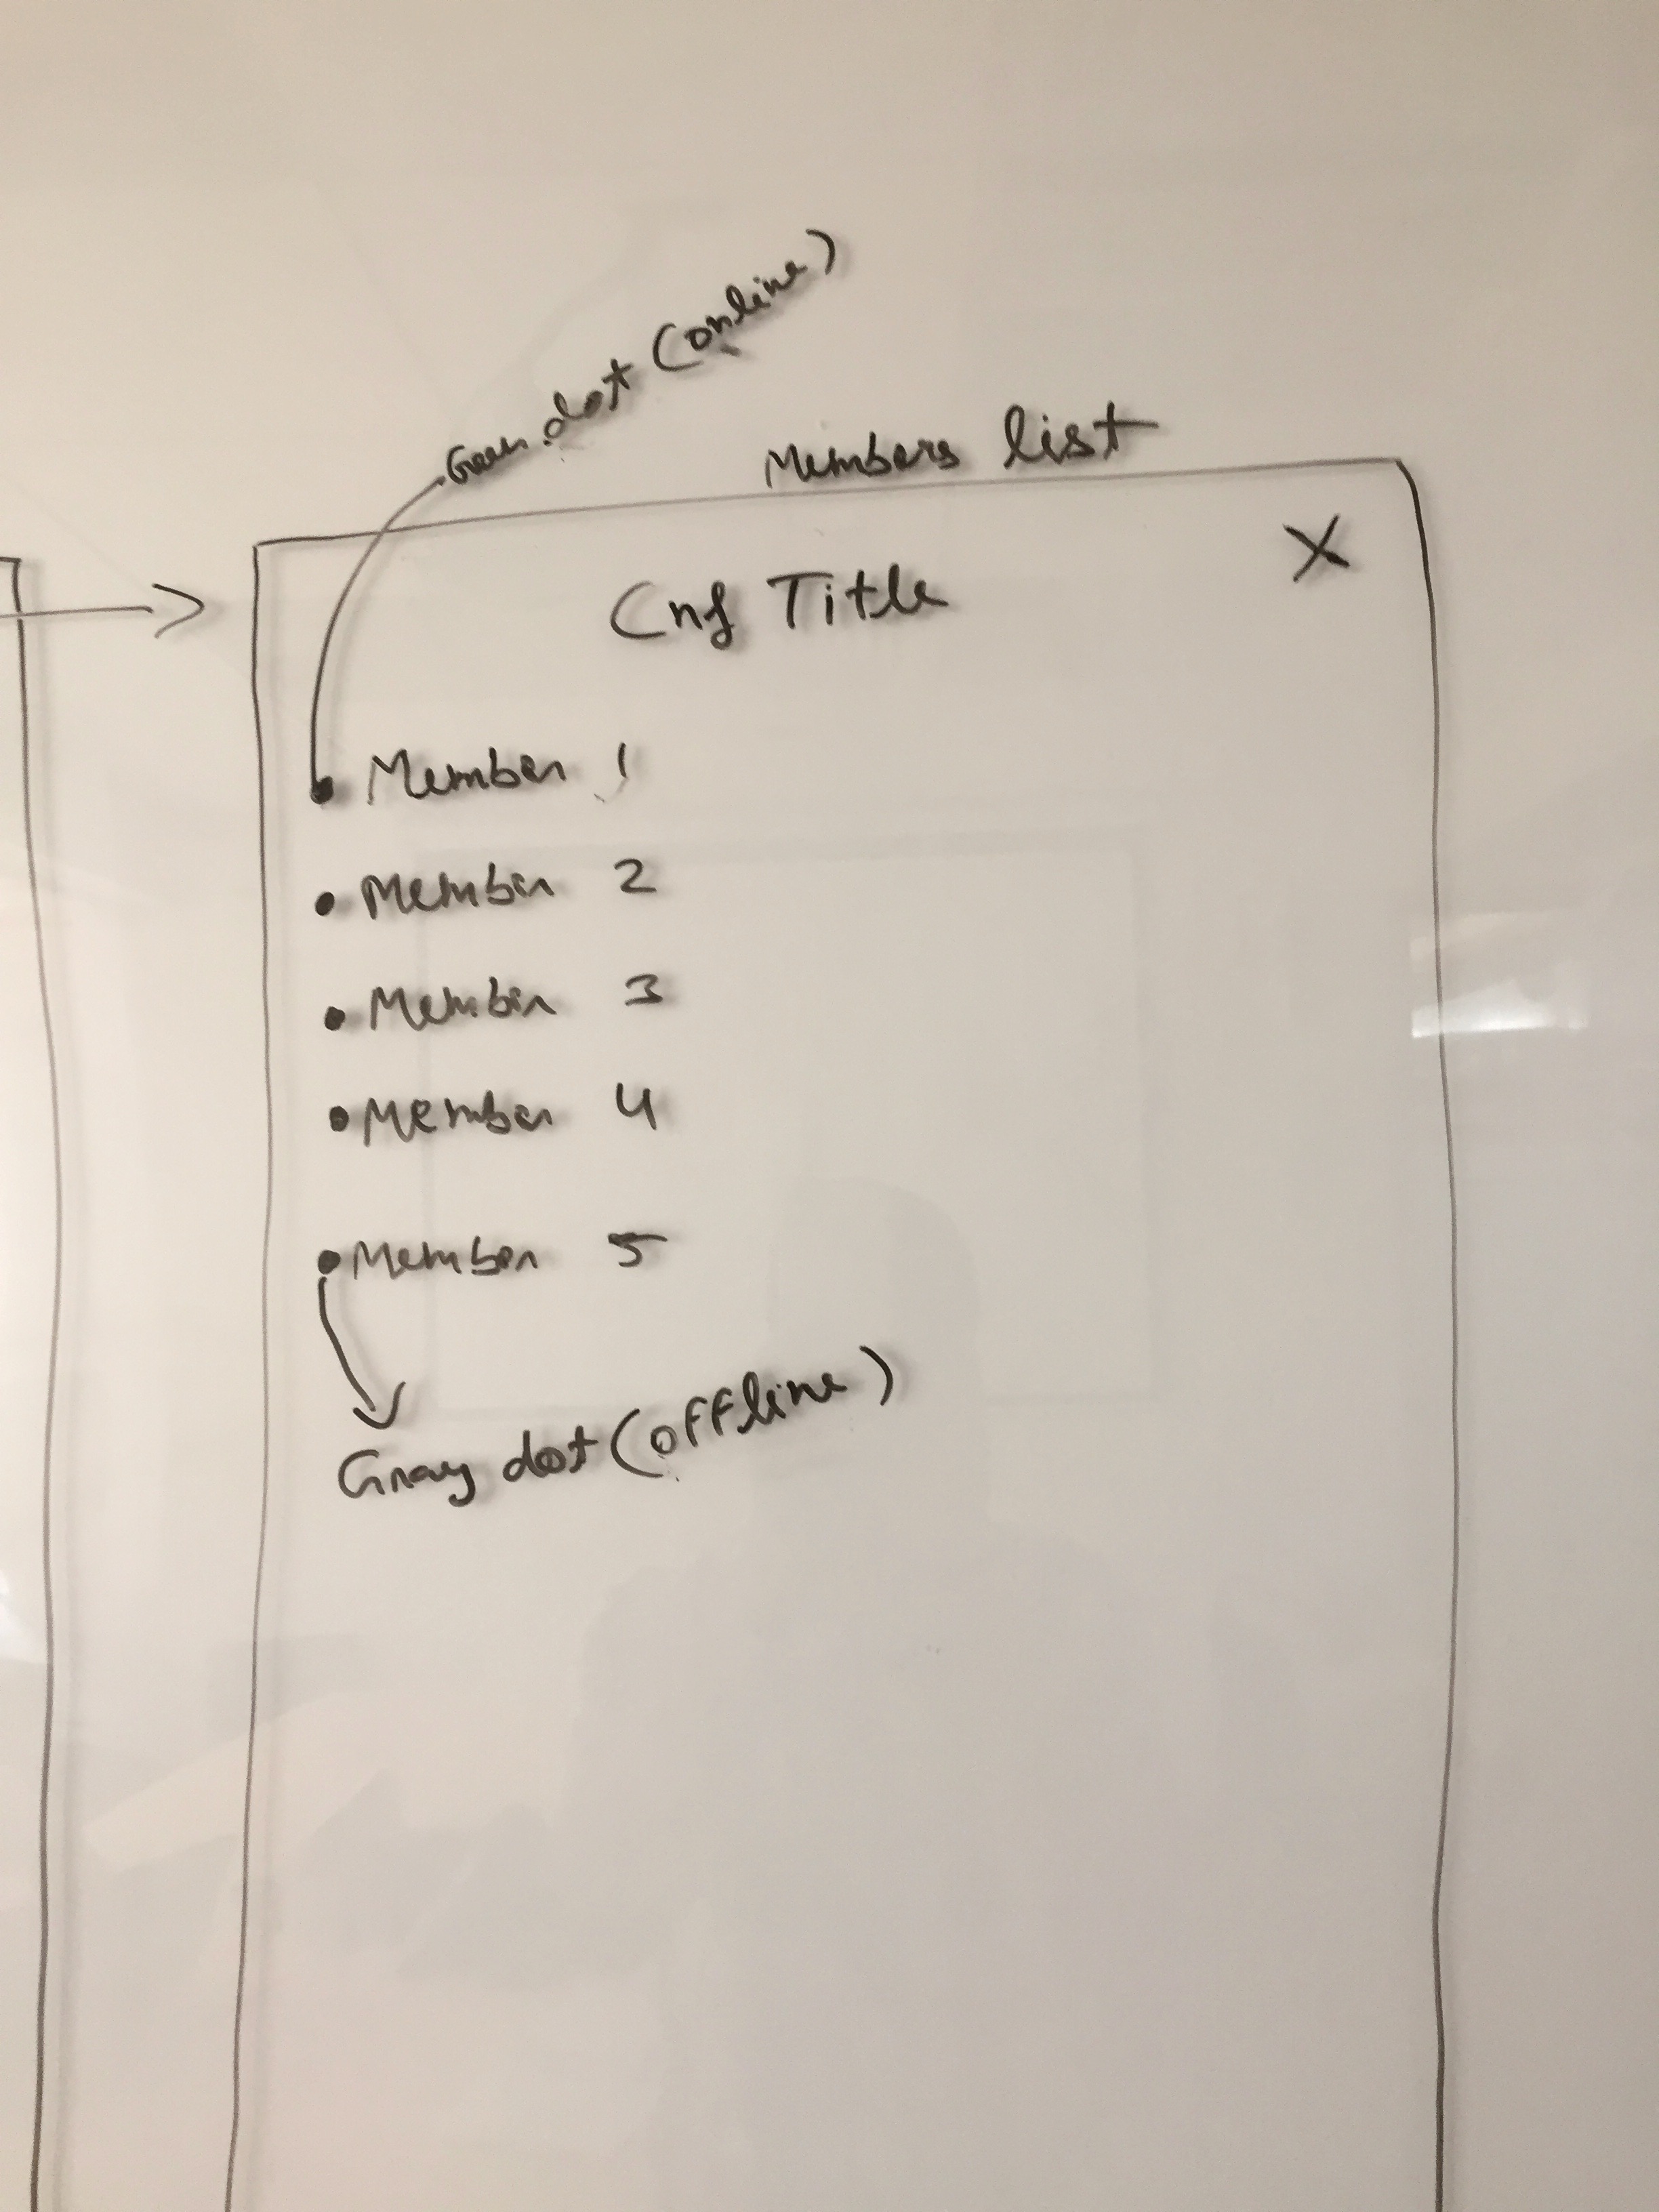 Green dot (online)
Members list
X
Cnf Title
• Member 1
• Member 2
• Member 3
• Member 4
• Member 5
Gray dot (offline)